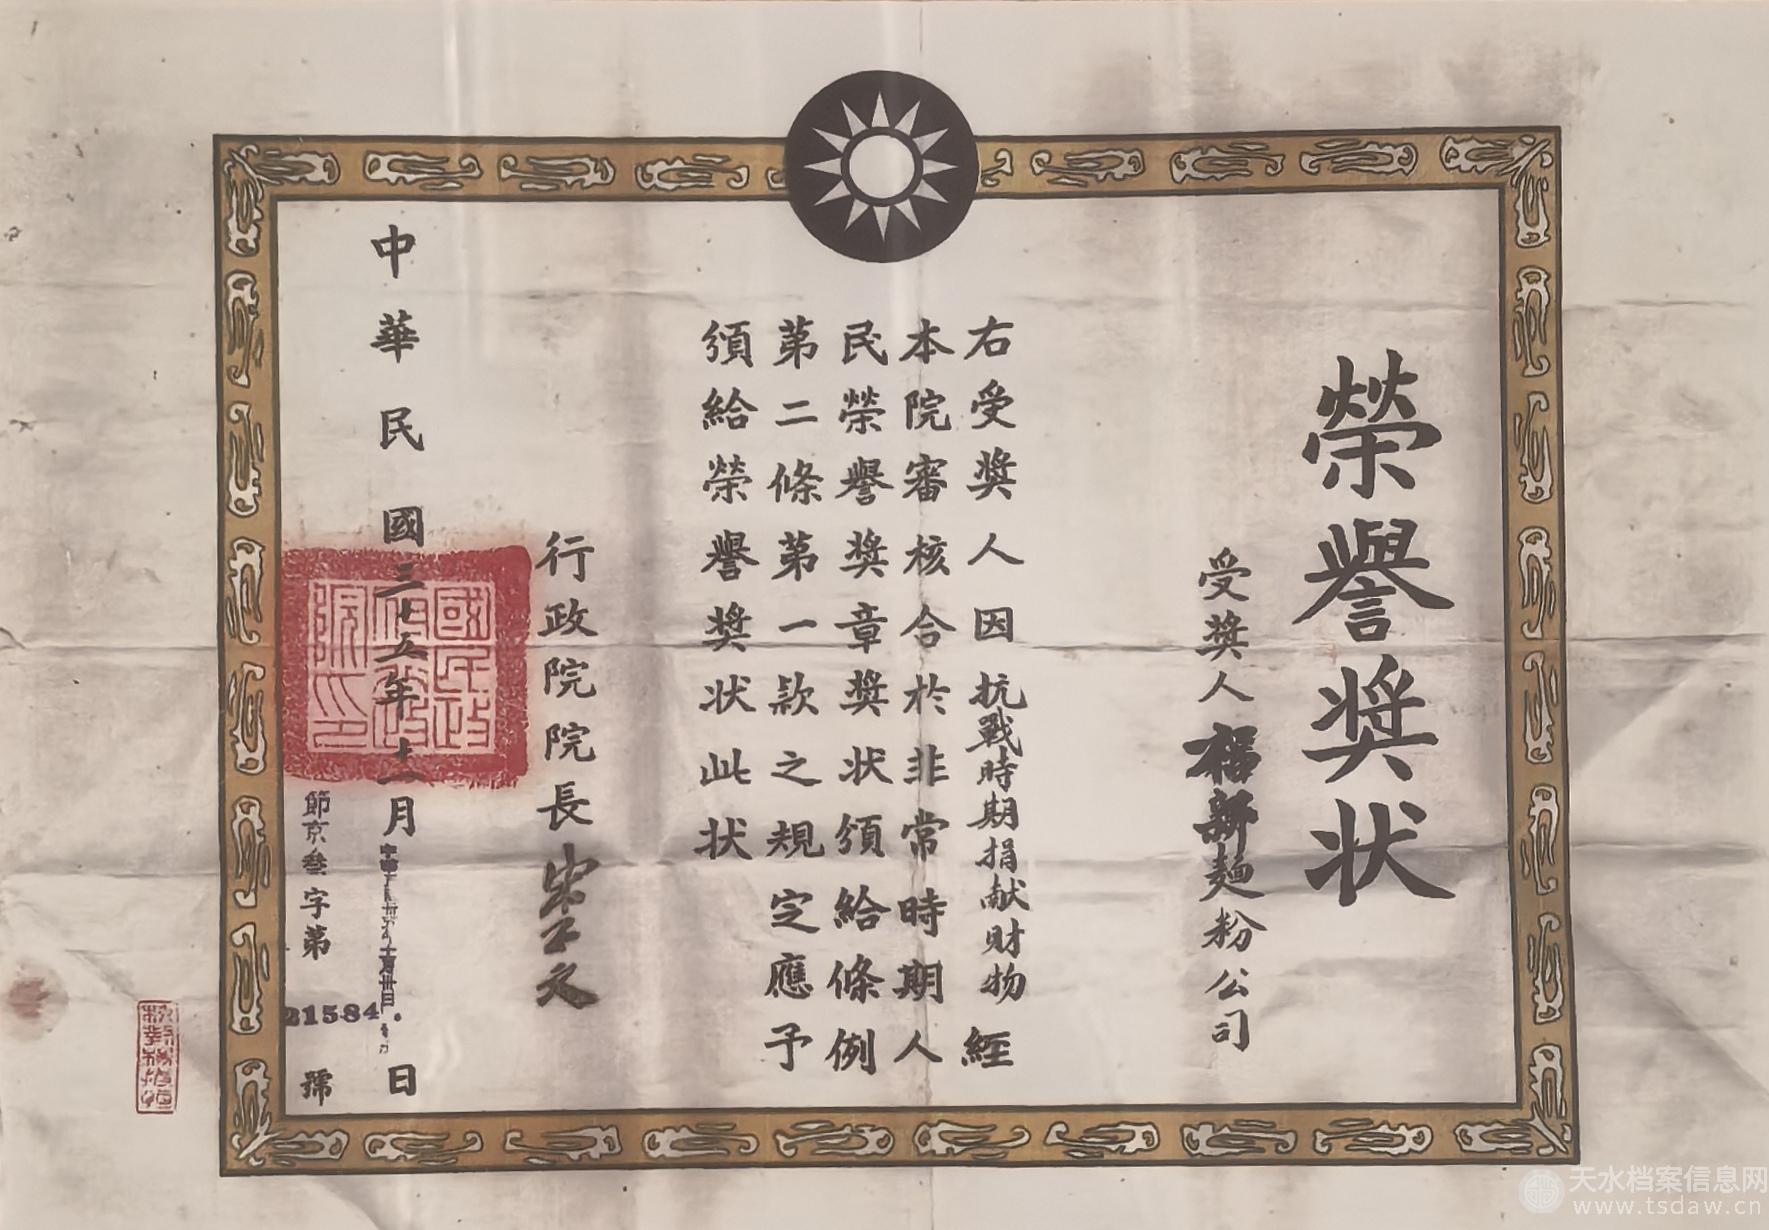 榮譽奬状
受奬人福新麵粉公司
右受奬人因抗戰時期捐献財物經
本院審核合於非常時期人
民榮譽奬章奬状頒給條例
第二條第一款之規定應予
頒給榮譽奬状此状
行政院院長宋子文
中華民國三十五年十一月
日
節京叁字第21584號
國民政府行政院印
天水档案信息网
www.tsdaw.cn